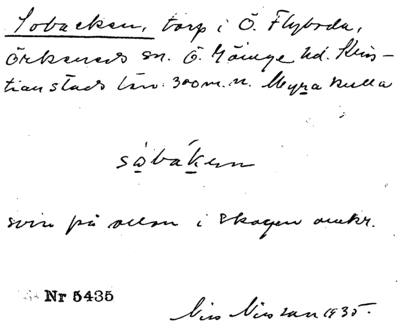 Sobacken, torp i Ö. Flyboda,
Örkeneds sn. Ö. Göinge hd. Kris-
tianstads län. 300 m. n. Myrakulla
såbákem
svin på ollon i skogen omkr.
Nr 5435
Nils Nilsson 1935.